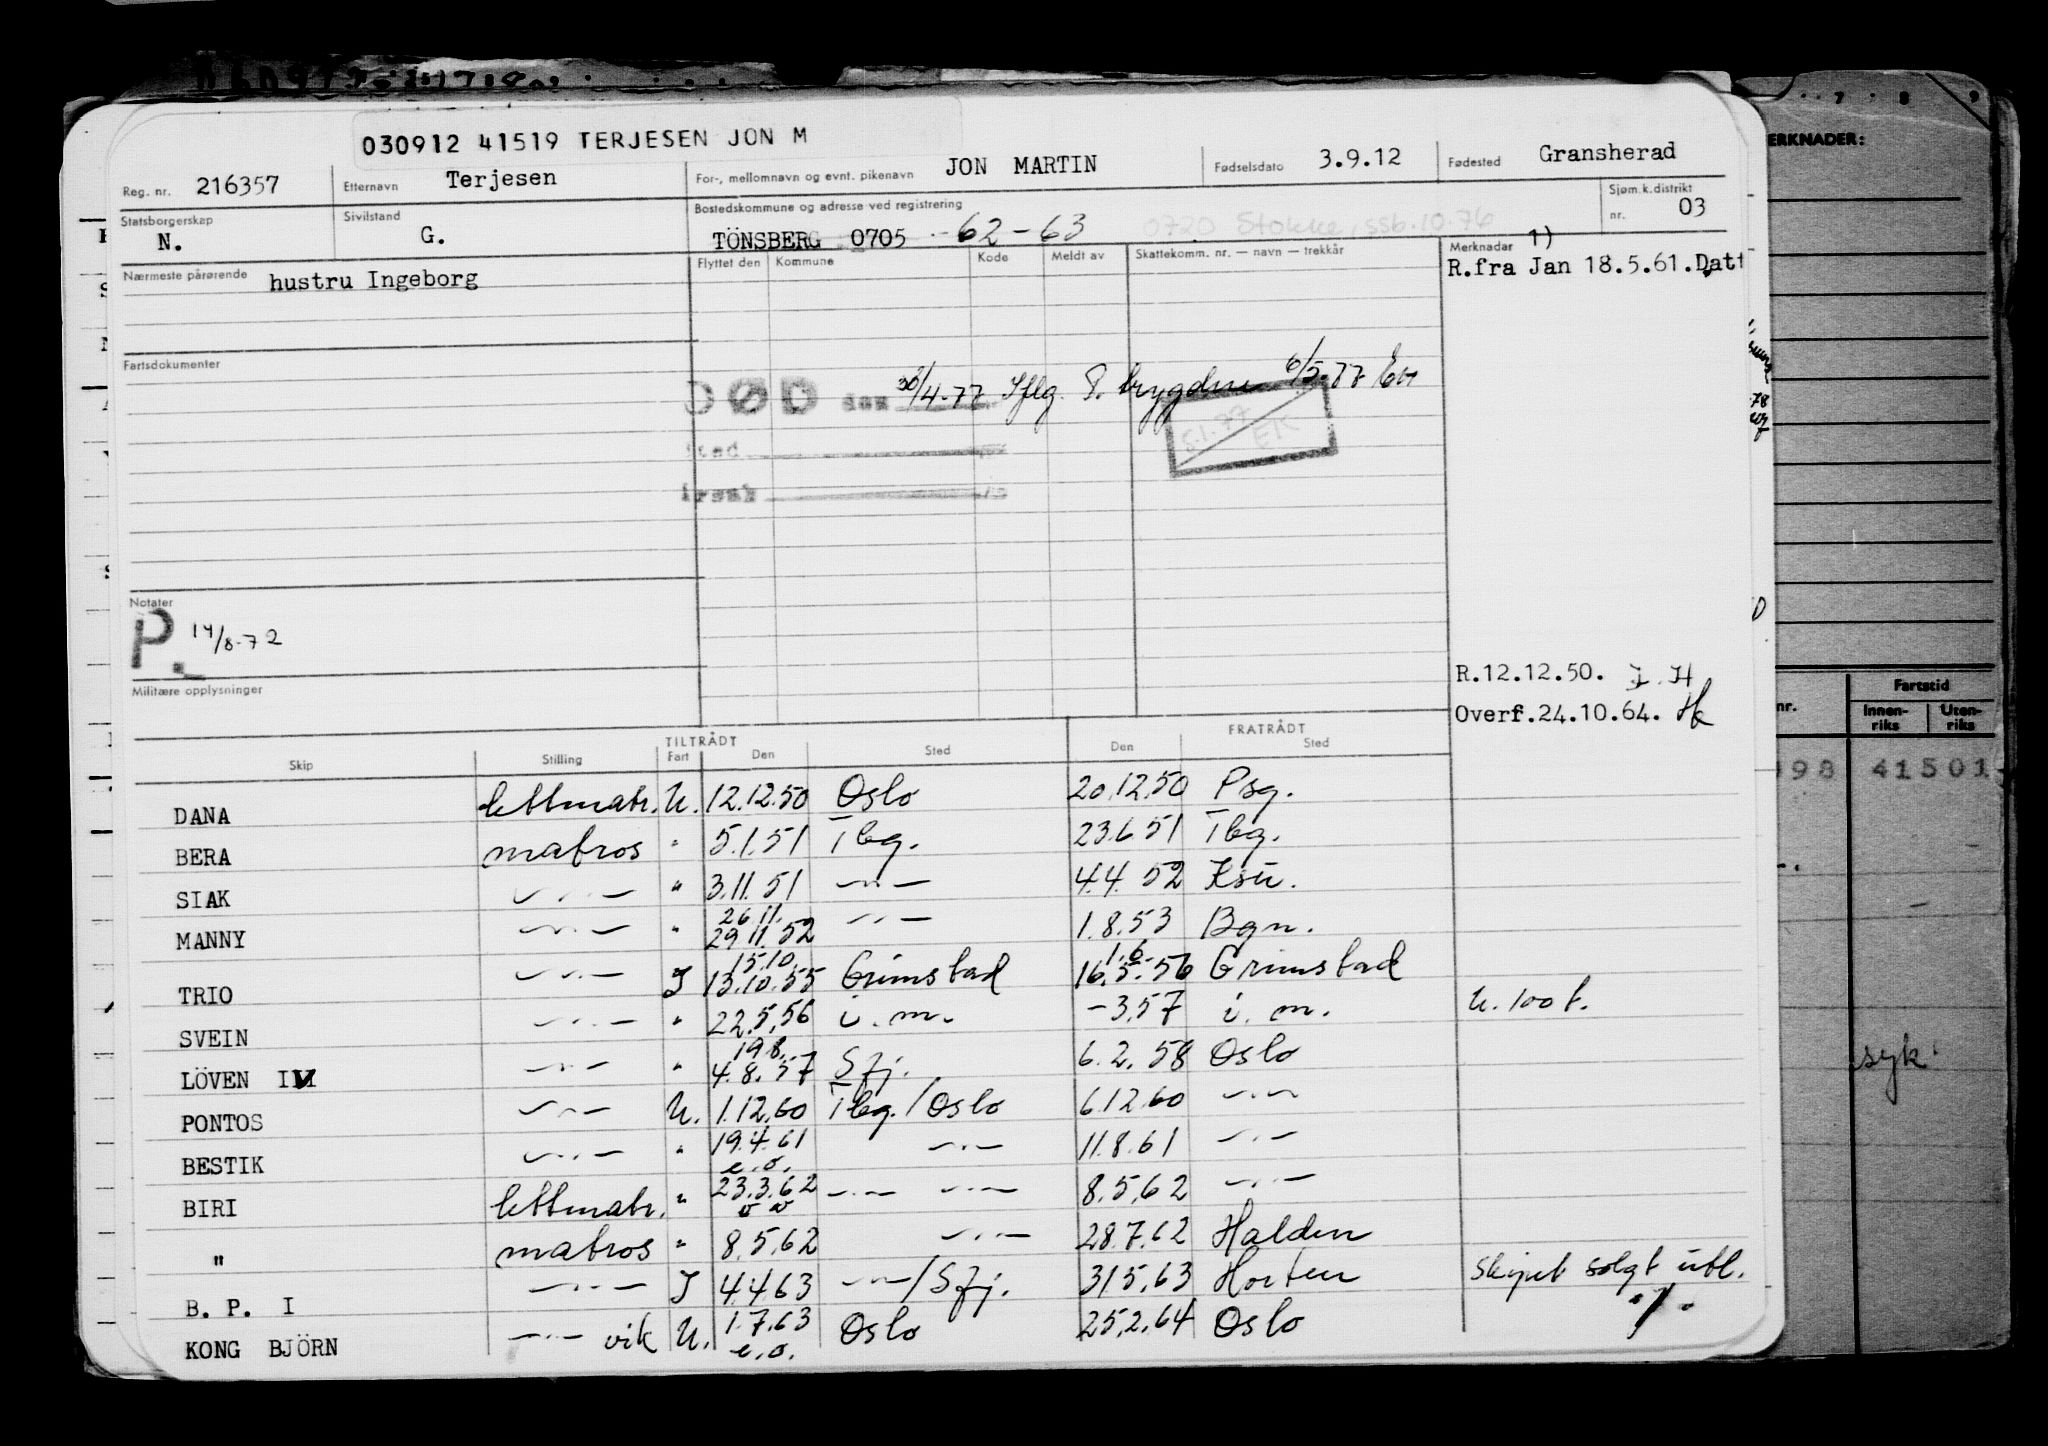 030912 41519 TERJESEN JON M
Reg. nr. 216357 Etternavn Terjesen For-, mellomnavn og evnt. pikenavn JON MARTIN Fødselsdato 3.9.12 Fødested Gransherad
Statsborgerskap N. Sivilstand G. Bostedskommune og adresse ved registrering TÖNSBERG 0705 62-63 0720 Stokke, ssb.10.76 Sjøm.k.distrikt nr. 03
Nærmeste pårørende hustru Ingeborg Flyttet den Kommune Kode Meldt av Skattekomm. nr. — navn — trekkår Merknader 1)
R.fra Jan 18.5.61.Datt
Fartsdokumenter
DØD den 30/4-77 Iflg. 6/5-77
sted
årsak
5.1.77 EK
Notater
P. 14/8-72
Militære opplysninger
R.12.12.50.
Overf.24.10.64.
TILTRÅDT FRATRÅDT
Skip Stilling Fart Den Sted Den Sted
DANA lettmatr. U. 12.12.50 Oslo 20.12.50 Psg.
BERA matros " 5.1.51 Tbg. 23.6.51 Tbg.
SIAK —"— " 3.11.51 —"— 4.4.52 Ksu.
MANNY —"— " 26.11. 29.11.52 —"— 1.8.53 Bgn.
TRIO —"— I 15.10. 13.10.55 Grimstad 1.6. 16.5.56 Grimstad
SVEIN —"— " 22.5.56 i.m. -3.57 i.m. U. 100 t.
LÖVEN —"— " 19.8. 4.8.57 Sfj. 6.2.58 Oslo
PONTOS —"— U. 1.12.60 Tbg./Oslo 6.12.60 —"—
BESTIK —"— " 19.4.61 e.o. —"— 11.8.61 —"—
BIRI lettmatr. " 23.3.62 —"— —"— 8.5.62 —"—
" matros " 8.5.62 —"— 28.7.62 Halden
B. P. I —"— I 4.4.63 —"—/Sfj. 31.5.63 Horten Skipet solgt utl.
KONG BJÖRN —"— vik U. 1.7.63 e.o. Oslo 25.2.64 Oslo
7 8 9
ERKNADER:
nr. Fartstid
Innen-riks Uten-riks
98 41501
syk